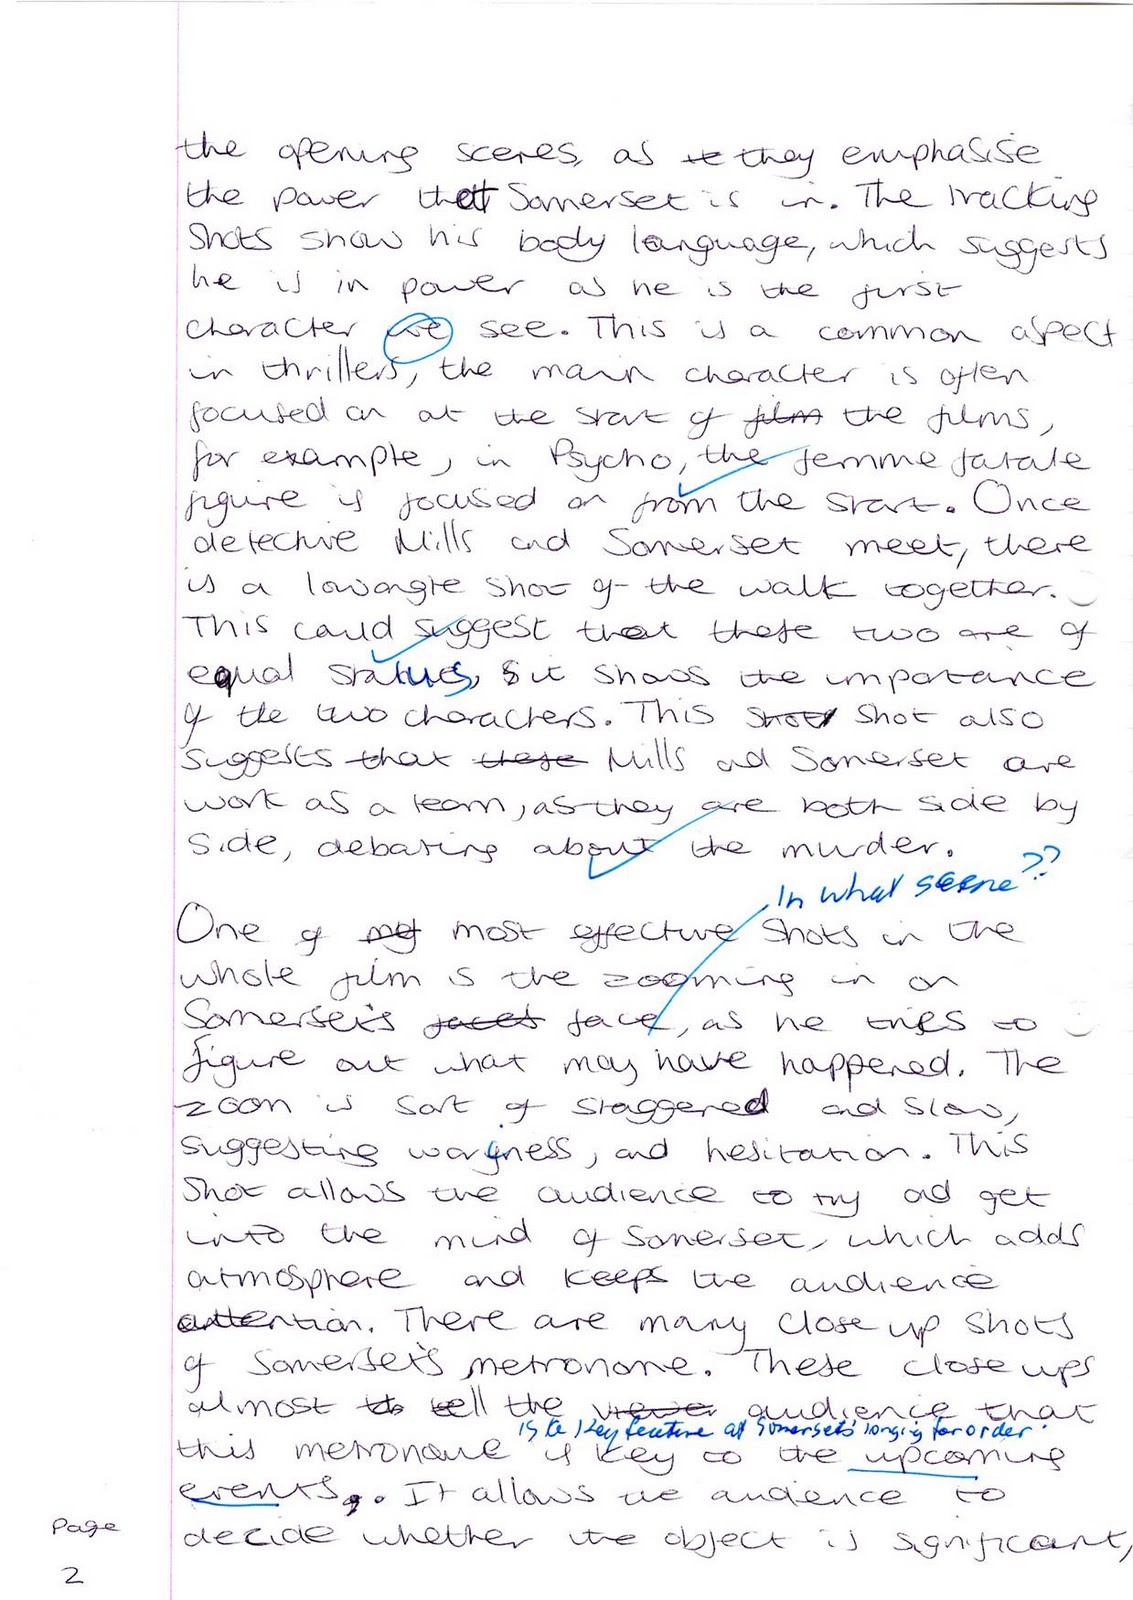 the opening scenes, as te they emphasise
the power that Somerset is in. The tracking
shots show his body language, which suggests
he is in power as he is the first
character we see. This is a common aspect
in thrillers, the main character is often
focused on at the start of film the films,
for example, in Psycho, the femme fatale
figure is focused on from the start. Once
detective Mills and Somerset meet, there
is a lowangle shot of the walk together.
This could suggest that these two are of
equal status, & it shows the importance
of the two characters. This shot shot also
suggests that these Mills and Somerset are
work as a team, as they are both side by
side, debating about the murder.
In what scene??
One of most effective shots in the
whole film is the zooming in on
Somerset's faces face, as he tries to
figure out what may have happened. The
zoom is sort of staggered and slow,
suggesting wariness, and hesitation. This
shot allows the audience to try and get
into the mind of Somerset, which adds
atmosphere and keeps the audience
attention. There are many close up shots
of Somerset's metronome. These close ups
almost to tell the viewer audience that
is the key feature of Somerset's longing for order.
this metronome is key to the upcoming
events. It allows the audience to
decide whether the object is significant,
Page
2